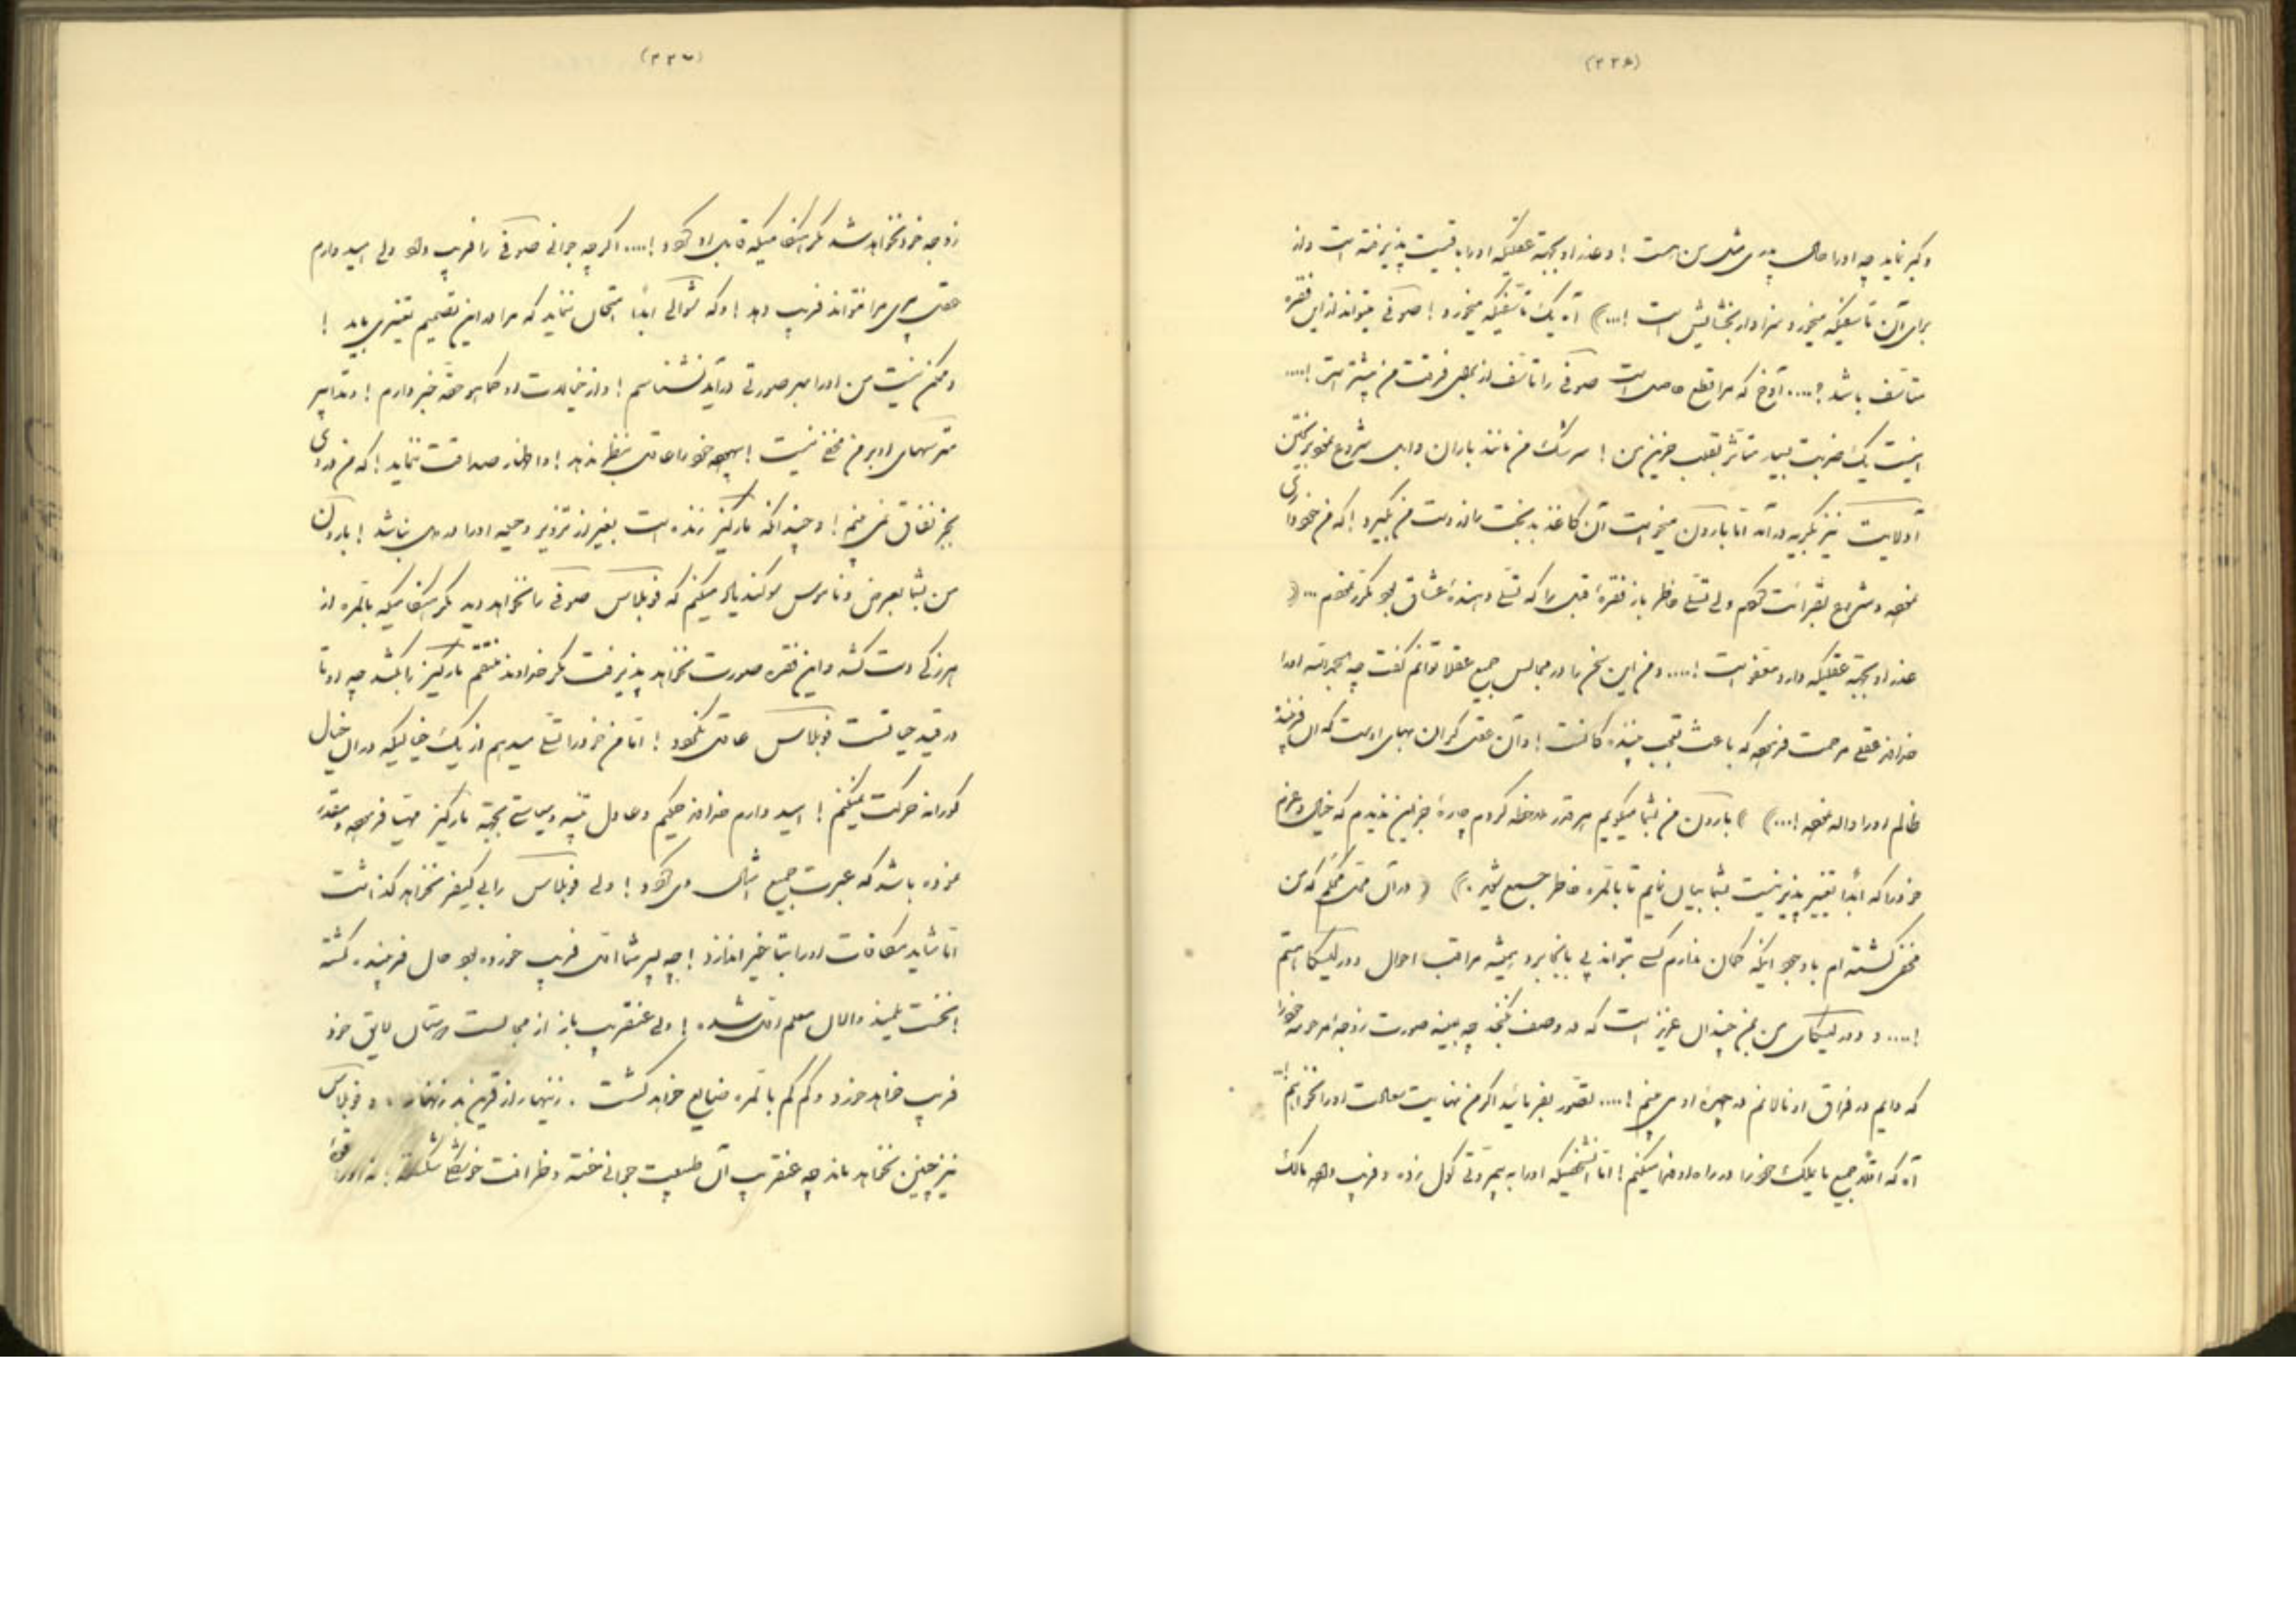 (۲۲۶)
و کبر نماید چه او را حال پدری مثل من است ! و عذر او بجهة عقلیکه او را باقیست پذیرفته است و از
برای آن تاسفیکه میخورد سزاوار بخشایش است !...) آه یک تاسفیکه میخورد ! صوفی میتواند از این فقره
متأسف باشد ؟.... آوخ که مرا قطع حاصل است صوفی را تاسف از بهر فرقت من بیشتر است !....
اینست یک ضربت بسیار متأثر بقلب حزین من ! سرشک من مانند باران وابل شروع بفروریختن
نیز بگریه درآمد اما بارون میخواست آن کاغذ بدبخت را از دست من بگیرد ! که من خودداری
نموده و شروع بقرائت کردم ولی تسلی خاطر باز فقرۀ قبل را که تسلی دهندۀ عشاق بود مکرر نمودم ... (
عذر او بجهة عقلیکه دارد معفو است !.... و من این سخن را در مجالس جمیع عقلا توانم گفت چه او را
خداوند عقلی مرحمت فرموده که باعث تعجب بینندگانست ! و آن عقل گران بهای اوست که آن فریبندۀ
ظالم او را واله نموده !...) ) بارون من بشما میگویم هر قدر ملاحظه کردم چارۀ جز این ندیدم که خیال و عزم
خود را که ابداً تغییر پذیر نیست بشما بیان نمایم تا بالمره خاطر جمع شوید .) ( در آن محلی که من
مخفی گشته ام باوجود اینکه گمان ندارم کسی بتواند پی بآنجا برد همیشه مراقب احوال هستم
!.... و من بمن چندان عزیز است که در وصف نگنجد چه همیشه صورت زوجه مرحومه خود را
که دایم در فراق او نالانم در چهرۀ او می بینم !.... تصور بفرمائید اگر من نهایت سعادت او را نخواهم !
آه که البته جمیع مایملک خود را در راه او فدا میکنم ! اما آنشخصیکه او را به بیمروتی گول زده و فریب داده مالک
(۲۲۷)
زوجه خود نخواهد شد مگر هنگامیکه قابل او گردد !.... اگر چه جوانی صوفی را فریب داده ولی امید وارم
عقل پیری مرا نتواند فریب دهد ! و که شوالی ابداً امتحان ننماید که مرا در این تصمیم تغییری یابد !
و ممکن نیست من او را بهر صورتی درآید نشناسم ! و از خیالات او کما هو حقه خبر دارم ! و تدابیر
های او بر من مخفی نیست ! بیهوده خود را عاقل بنظر ندهد ! و اظهار صداقت ننماید ! که من در وی
بجز نفاق نمی بینم ! و چندانکه مارکیز زنده است بغیر از تزویر و حیله او را در دل نباشد ! بارون
من بشما بعرض و ناموس سوگند یاد میکنم که فوبلاس صوفی را نخواهد دید مگر هنگامیکه بالمره از
هرزگی دست کشد و این فقره صورت نخواهد پذیرفت مگر خداوند منتقم مارکیز را بکشد چه او تا
در قید حیاتست فوبلاس عاقل نگردد ! اما من خود را تسلی میدهم از یک خیالیکه در آن خیال
کورانه حرکت نمیکنم ! امید وارم خداوند حکیم و عادل تنبیه و سیاستی بجهة مارکیز مهیا فرموده و مقدر
نموده باشد که عبرت جمیع امثال وی گردد ! ولی فوبلاس را بی کیفر نخواهد گذاشت
اما شاید مکافات او را بتأخیر اندازد ! چه پسر شما اول فریب خورده بود حال فریبنده گشته
! نخست تلمیذ و الان معلم اول شده ! ولی عنقریب باز از مجالست دوستان لایق خود
فریب خواهد خورد و کم کم بالمره ضایع خواهد گشت . زینهار از قرین بد زنهار .. و فوبلاس
نیز چنین نخواهد ماند چه عنقریب آن طبیعت جوانی خفته و ظرافت خوشگلی شکسته ! نه او را قوۀ